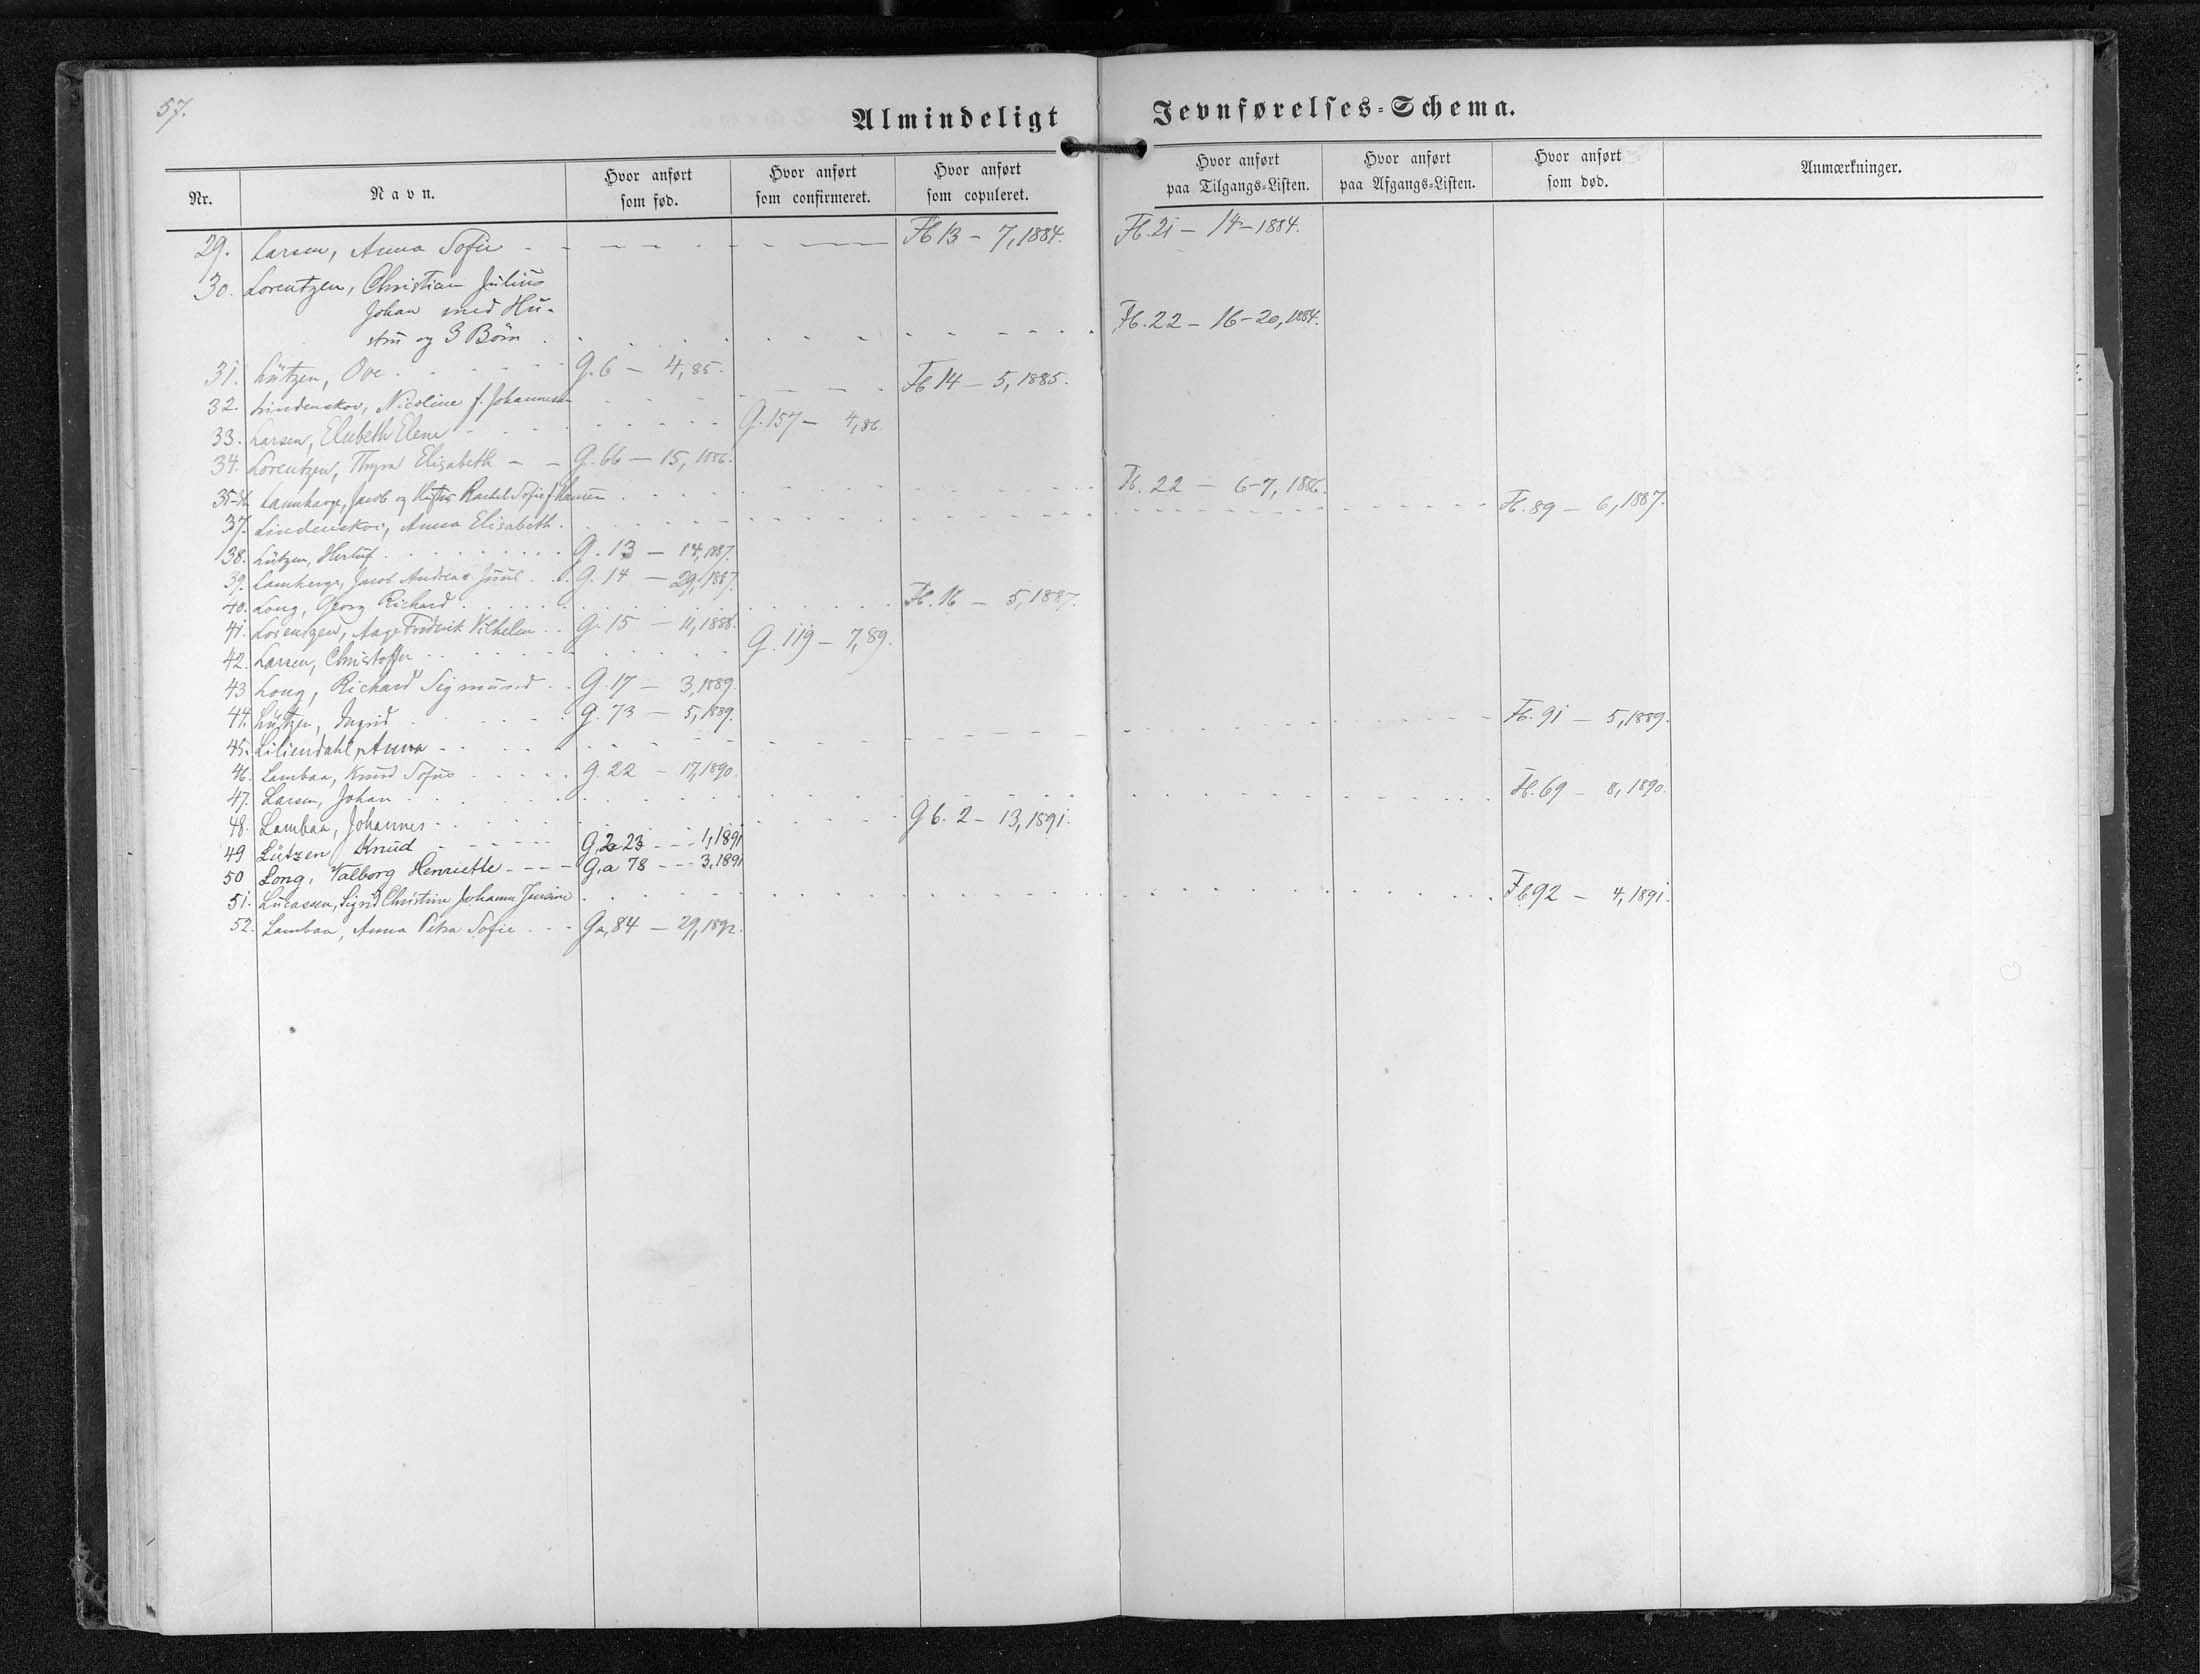 57.
Almindeligt Jevnførelses-Schema.
Nr. Navn. Hvor anført som fød. Hvor anført som confirmeret. Hvor anført som copuleret. Hvor anført paa Tilgangs-Listen. Hvor anført paa Afgangs-Listen. Hvor anført som død. Anmærkninger.
29. Larsen, Anna Sofie Fb 13 - 7, 1884. Fb. 21 - 14 - 1884.
30. Lorentzen, Christian Julius
Johan med Hu-
stru og 3 Börn Fb. 22 - 16-20, 1884.
31. Lützen, Ove G. 6 - 4, 85.
32. Lindenskov, Nicoline f. Johannesen Fb 14 - 5, 1885.
33. Larsen, Elsebeth Elene G. 157 - 4, 86.
34. Lorentzen, Thyra Elisabeth G. 66 - 15, 1886.
35-36 Lamhauge, Jacob og Hustru Rachel Sofie f. Hansen Fb. 22 - 6-7, 1886.
37. Lindenskov, Anna Elisabeth Fb. 89 - 6, 1887.
38. Lützen, Herluf G. 13 - 14, 1887.
39. Lamhauge, Jacob Andreas Juul G. 14 - 29, 1887.
40. Long, Georg Richard Fb. 16 - 5, 1887.
41. Lorentzen, Aage Frederik Vilhelm G. 15 - 11, 1888.
42. Larsen, Christoffer G. 119 - 7, 89.
43 Long, Richard Sigmund G. 17 - 3, 1889.
44. Lützen, Ingrid G. 73 - 5, 1889.
45. Liliendahl, Anna Fb. 91 - 5, 1889.
46. Lambaa, Knud Sofus G. 22 - 17, 1890.
47. Larsen, Johan Fb. 69 - 8, 1890.
48. Lambaa, Johannes Gb. 2 - 13, 1891.
49 Lützen, Knud G, a 23 - 1, 1891
50 Long, Valborg Henriette G, a 78 - 3, 1891
51. Lucassen, Sigrid Christine Johanne Jensine Fb 92 - 4, 1891.
52. Lambaa, Anna Petra Sofie Ga, 84 - 29, 1892.